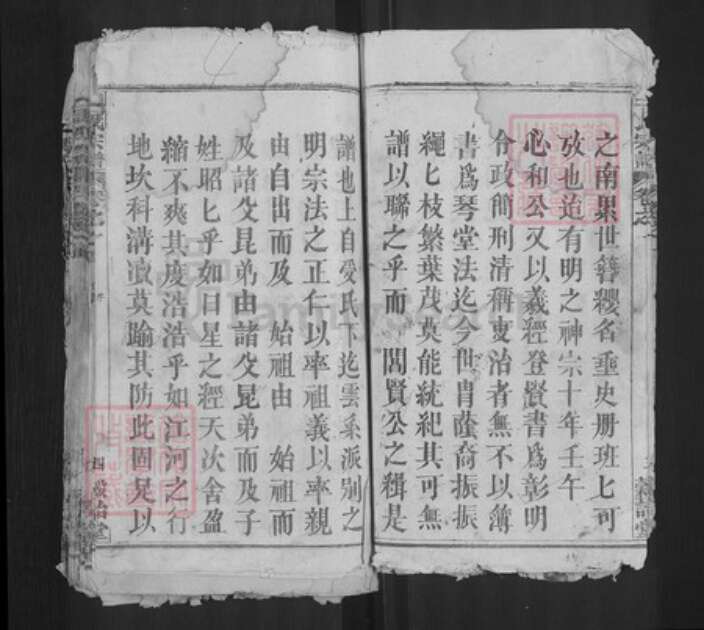 之南累世簪纓名垂史册班匕可
攷也迨有明之神宗十年壬午
心和公又以羲經登賢書爲彰明
令政簡刑清稱吏治者無不以簿
書爲琴堂法迄今世胄蔭裔振振
繩匕枝繁葉茂莫能統紀其可無
譜以聯之乎而 閣賢公之輯是
譜也上自受氏下迄雲系派别之
明宗法之正仁以率祖義以率親
由自出而及 始祖由 始祖而
及諸父昆弟由諸父昆弟而及子
姓昭匕乎如日星之經天次舍盈
縮不爽其度浩浩乎如江河之行
地坎科溝澮莫踰其防此固足以
四